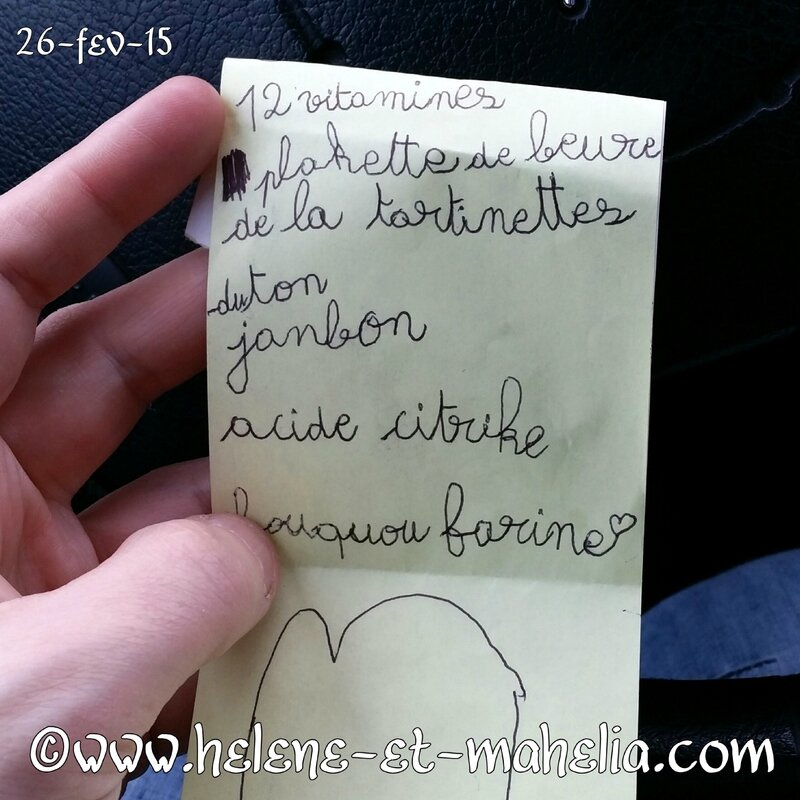 26-fev-15
12 vitamines
plakette de beure
de la tartinettes
-du ton
janbon
acide citrike
farine♡
©www.helene-et-mahelia.com